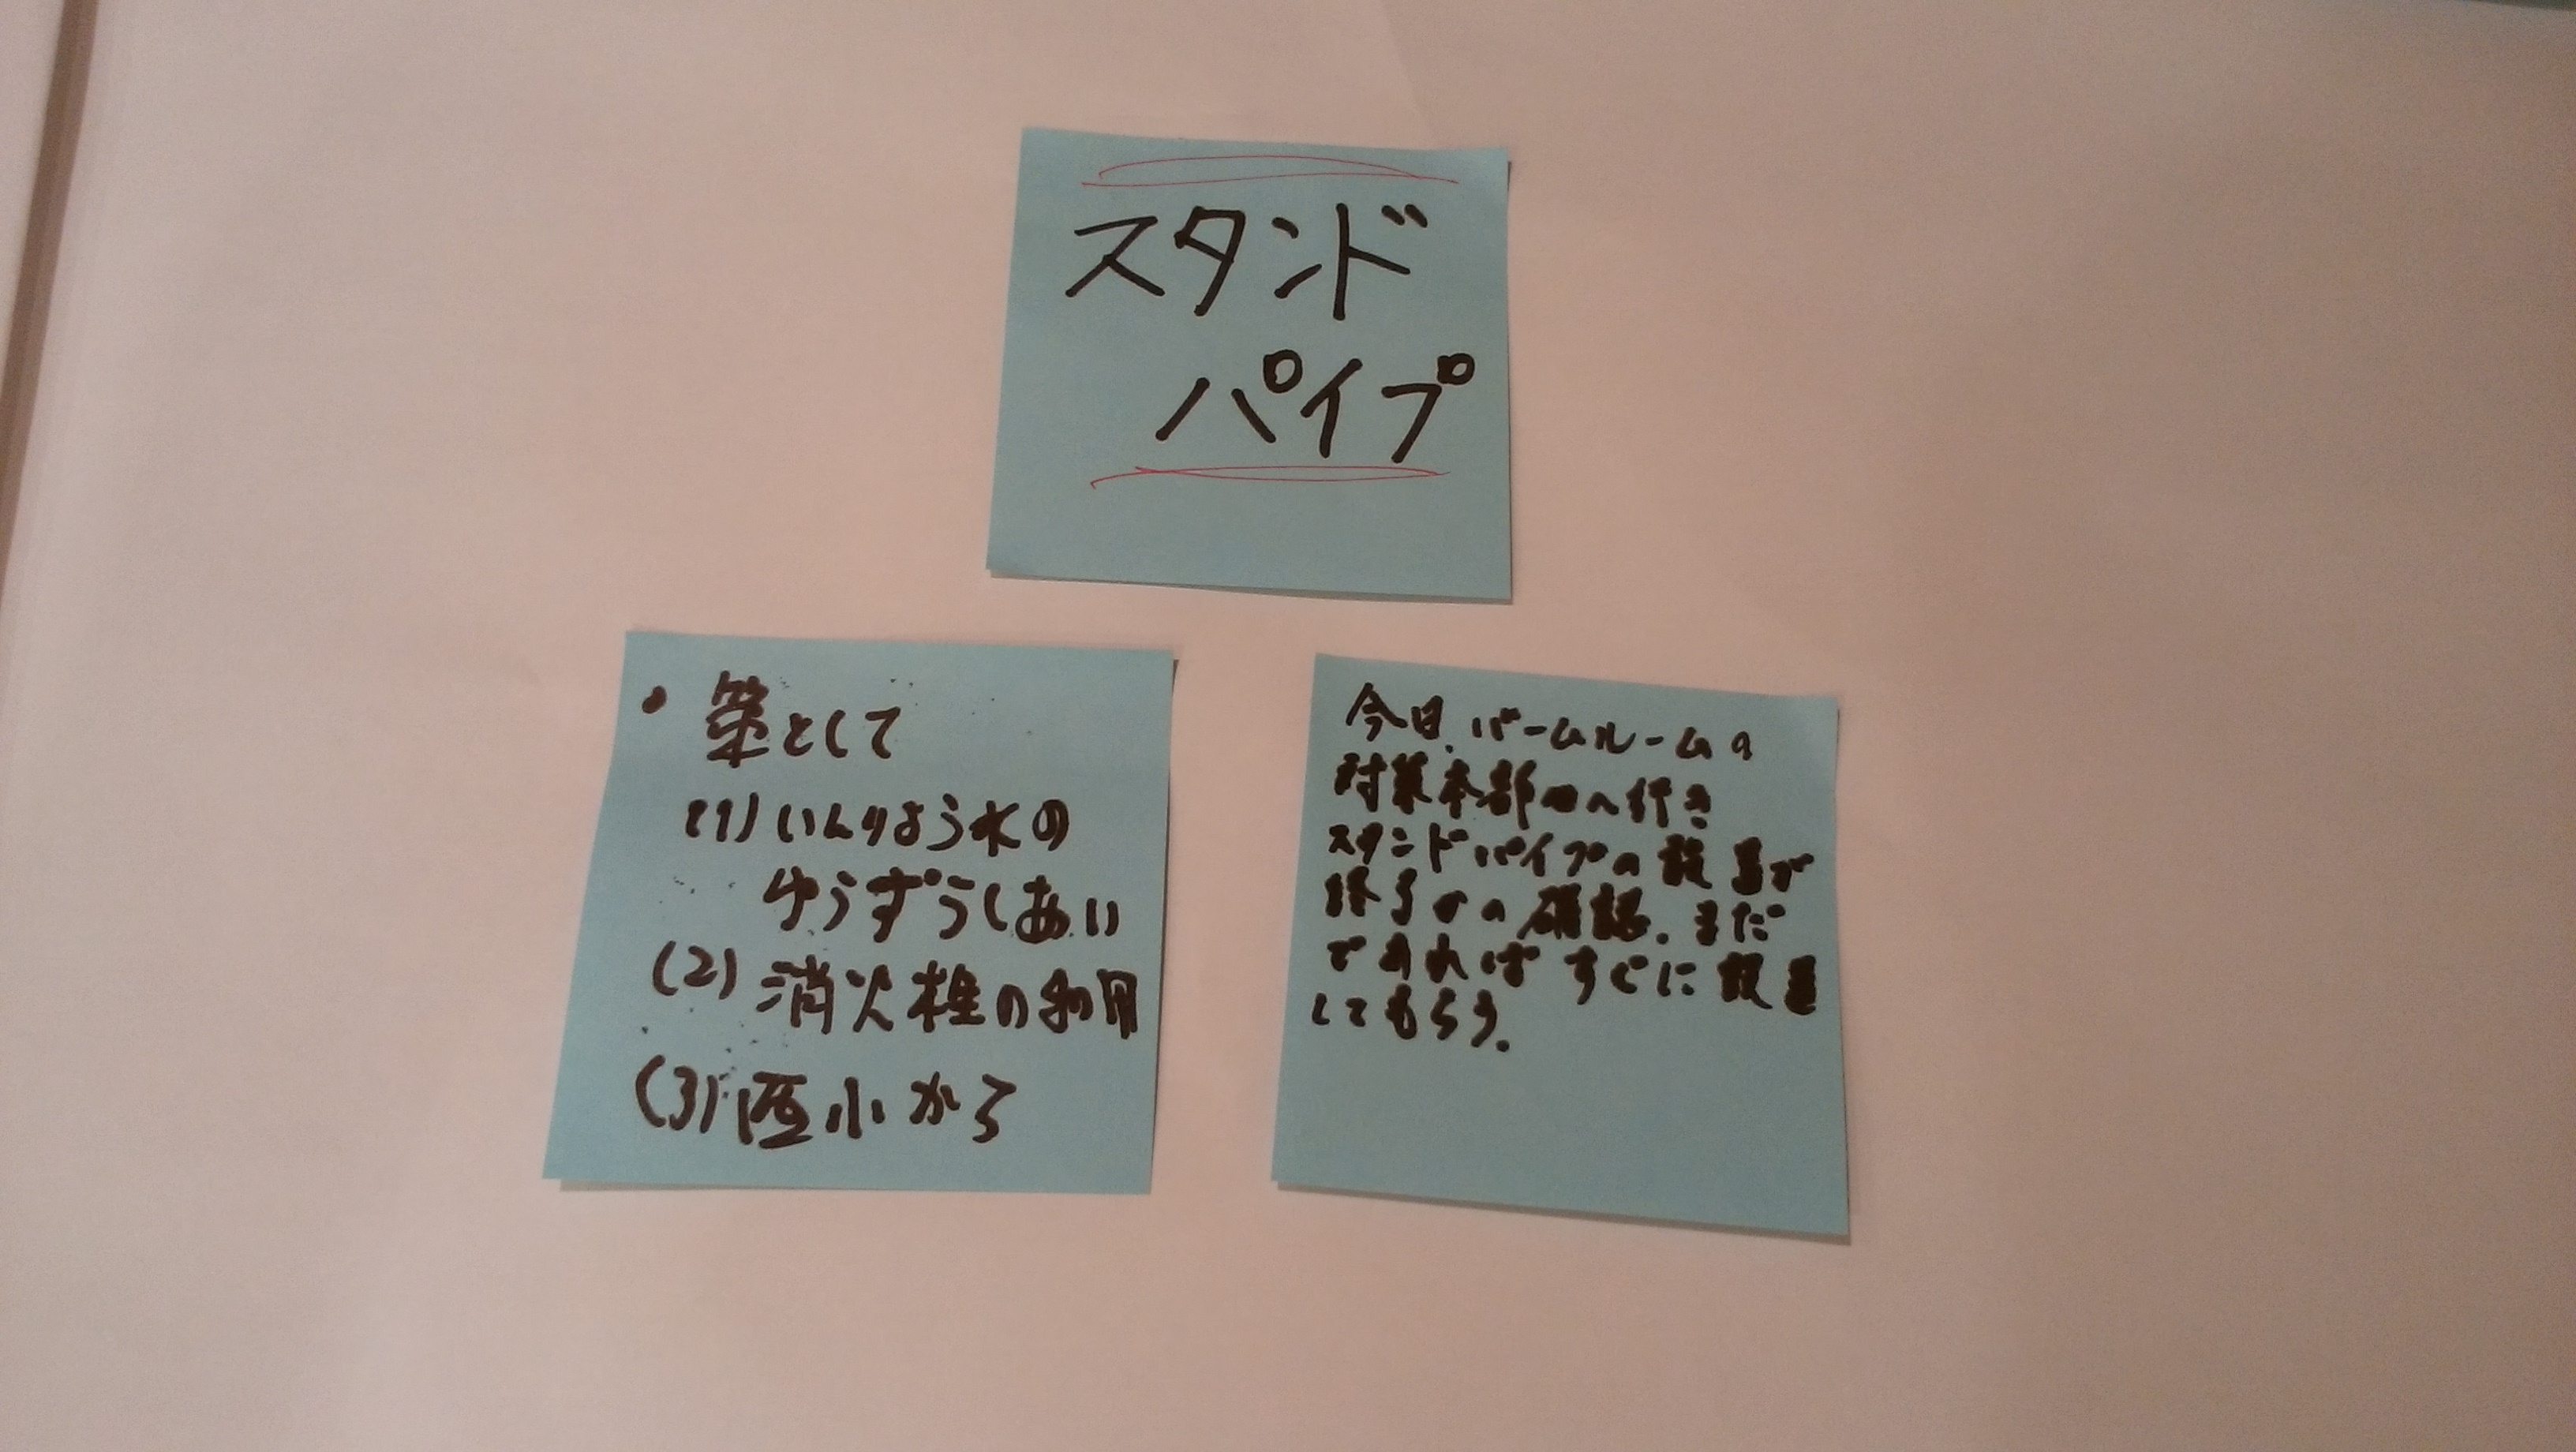 スタンド
パイプ
・策として
(1) いんりよう水の
ゆうずうしあい
(2) 消火栓の利用
(3) 西小から
今日.バームルームの
対策本部へ行き
スタンドパイプの設置が
終了かの確認.まだ
であればすぐに設置
してもらう.